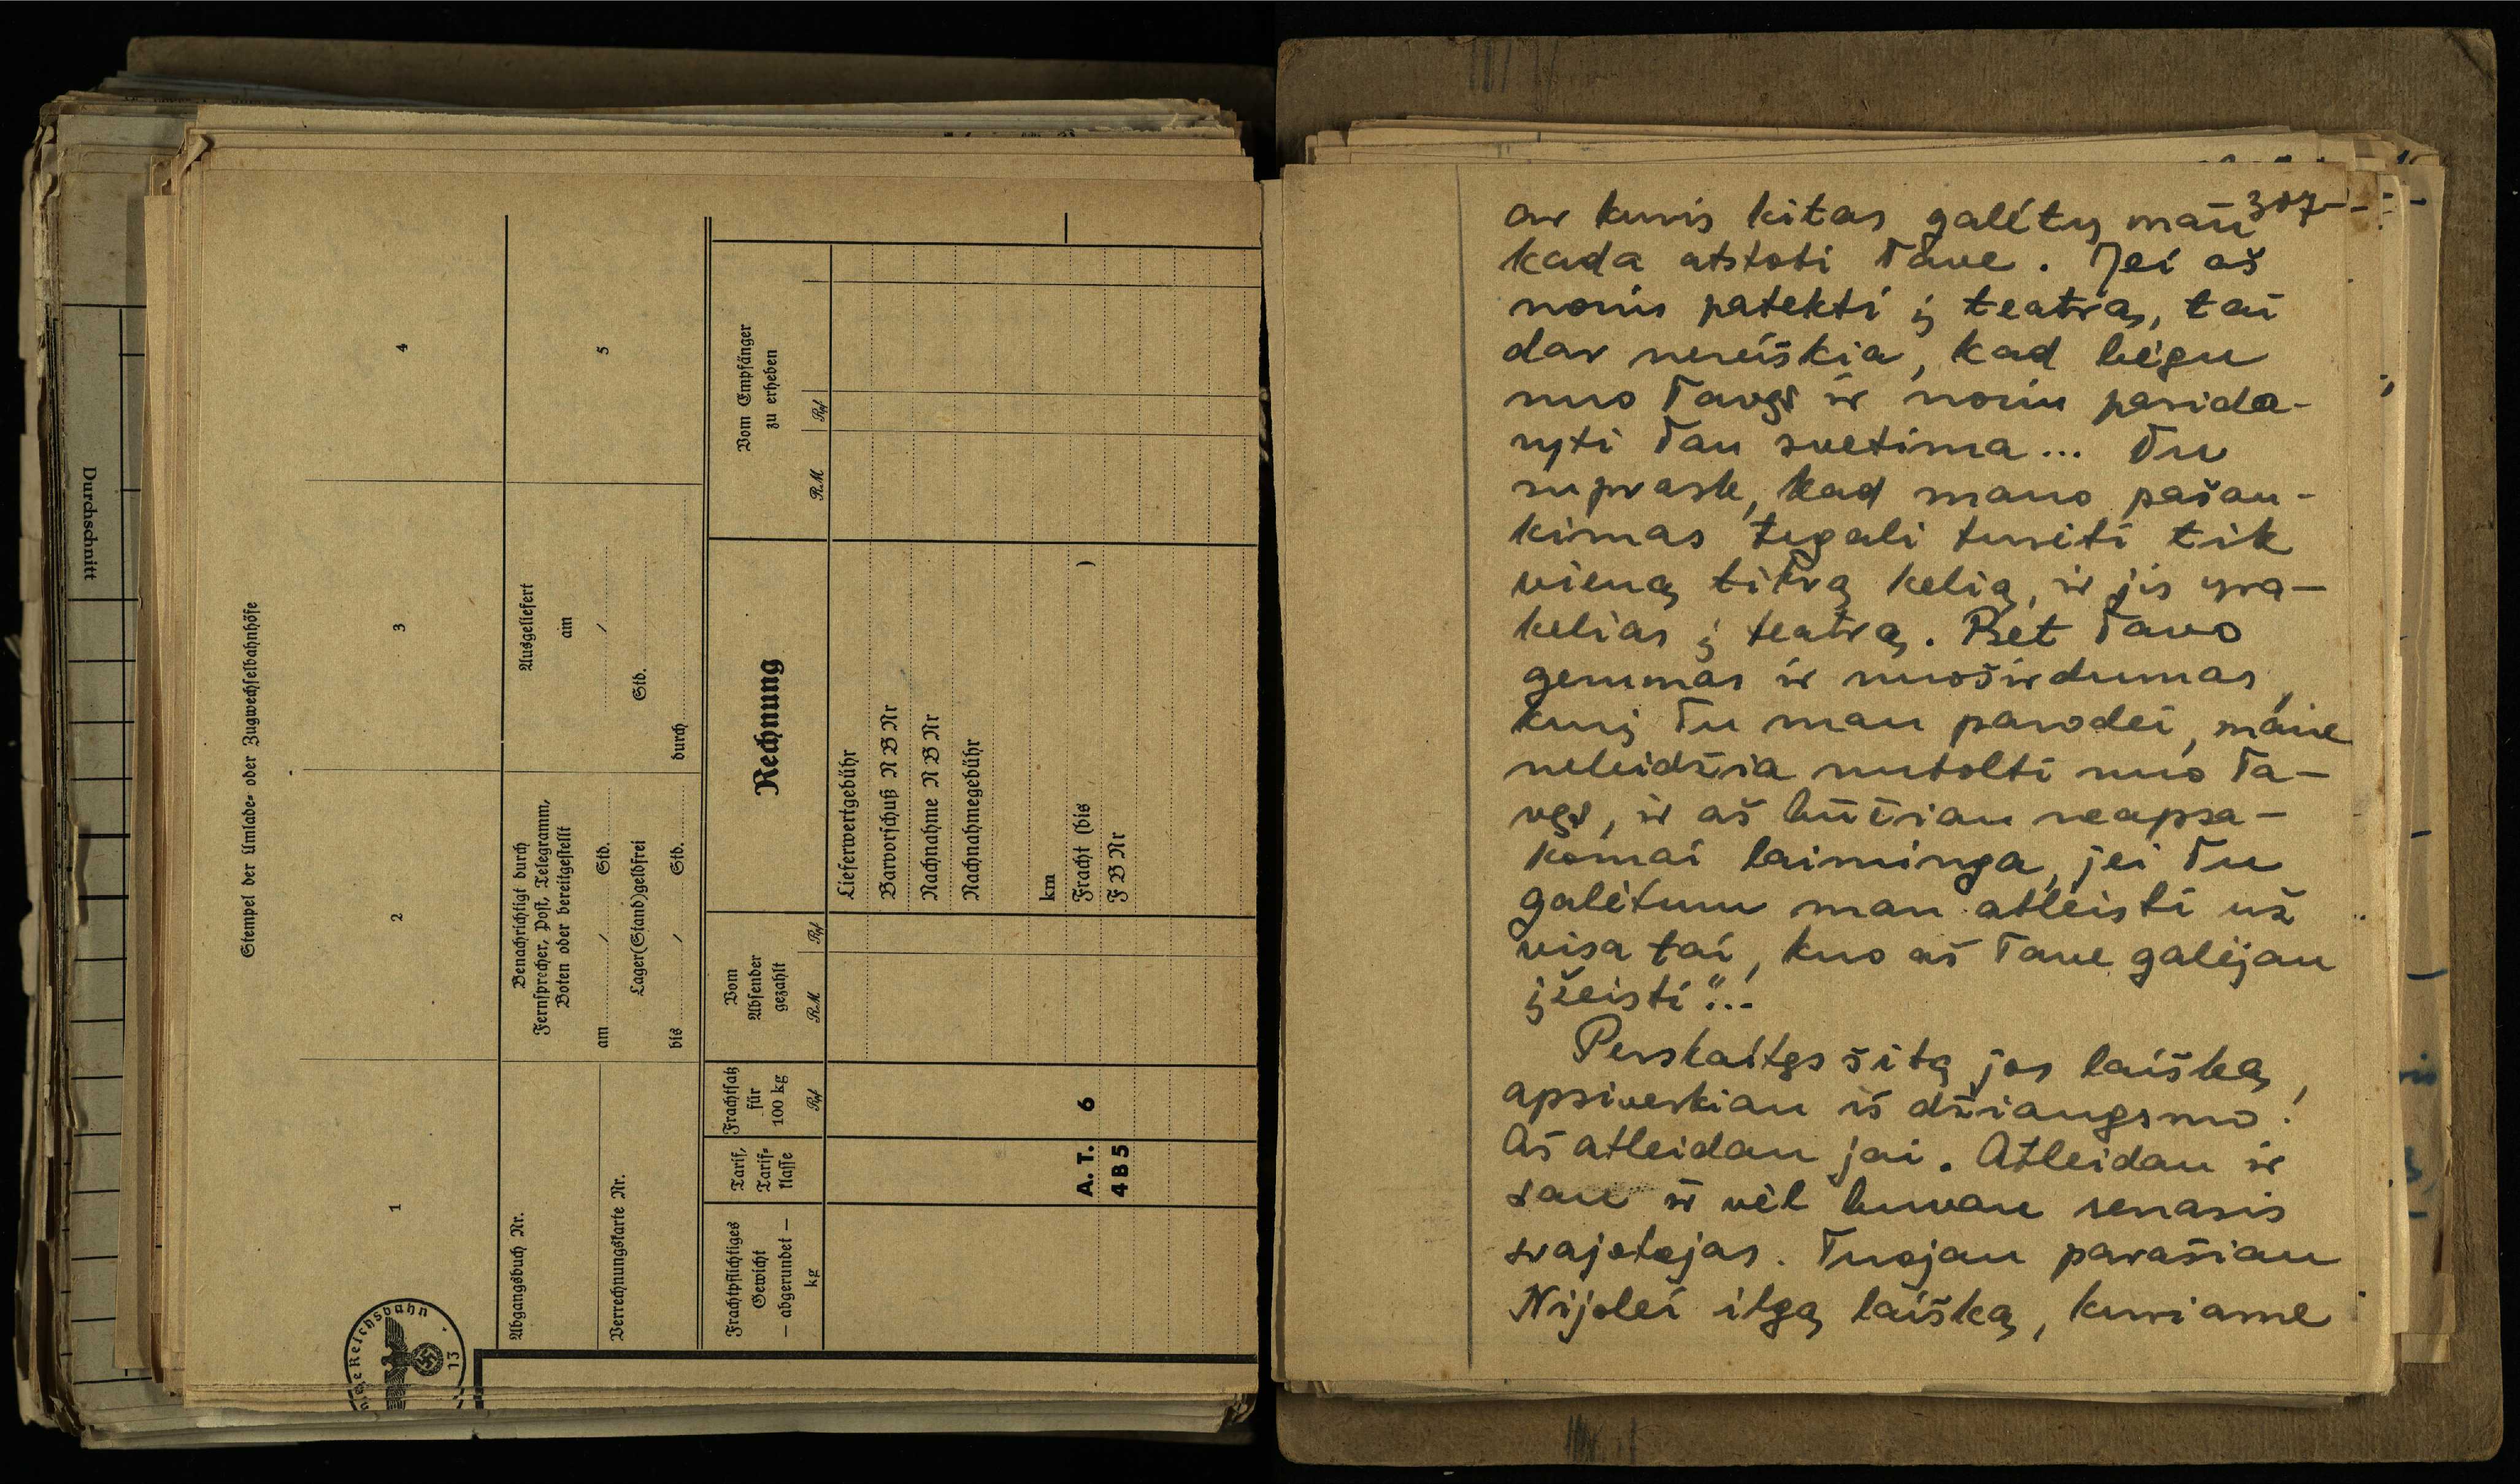 Durchschnitt
Stempel der Umlade- oder Zugwechselbahnhöfe
1
2
3
4
Abgangsbuch Nr.
Benachrichtigt durch
Fernsprecher, Post, Telegramm,
Boten oder bereitgestellt
Ausgeliefert
am
5
Verrechnungskarte Nr.
am / Std.
/
Lager(Stand)geldfrei
Std.
bis / Std.
durch
Frachtpflichtiges
Gewicht
— abgerundet —
kg
Tarif,
Tarif-
klasse
Frachtsatz
für
100 kg
Rpf
Vom
Absender
gezahlt
RM
Rpf
Rechnung
Vom Empfänger
zu erheben
RM
Rpf
Lieferwertgebühr
Barvorschuß N B Nr
Nachnahme N B Nr
Nachnahmegebühr
km
A. T. 6 Fracht (bis )
4 B 5 F B Nr
Reichsbahn
13
307-
ar kuris kitas galėtų man
kada atstoti Tave. Jei aš
noriu patekti į teatrą, tai
dar nereiškia, kad bėgu
nuo Tavęs ir noriu pasida-
ryti Tau svetima... Tu
suprask, kad mano pašau-
kimas tegali turėti tik
vieną tikrą kelią, ir jis yra—
kelias į teatrą. Bet Tavo
gerumas ir nuoširdumas,
kurį Tu man parodei, mane
neleidžia nutolti nuo Ta-
vęs, ir aš būčiau neapsa-
komai laiminga, jei Tu
galėtum man atleisti už
visa tai, kuo aš Tave galėjau
įžeisti"...
Perskaitęs šitą jos laišką,
apsiverkiau iš džiaugsmo!
Aš atleidau jai. Atleidau ir
sau ir vėl buvau senasis
svajotojas. Tuojau parašiau
Nijolei ilgą laišką, kuriame